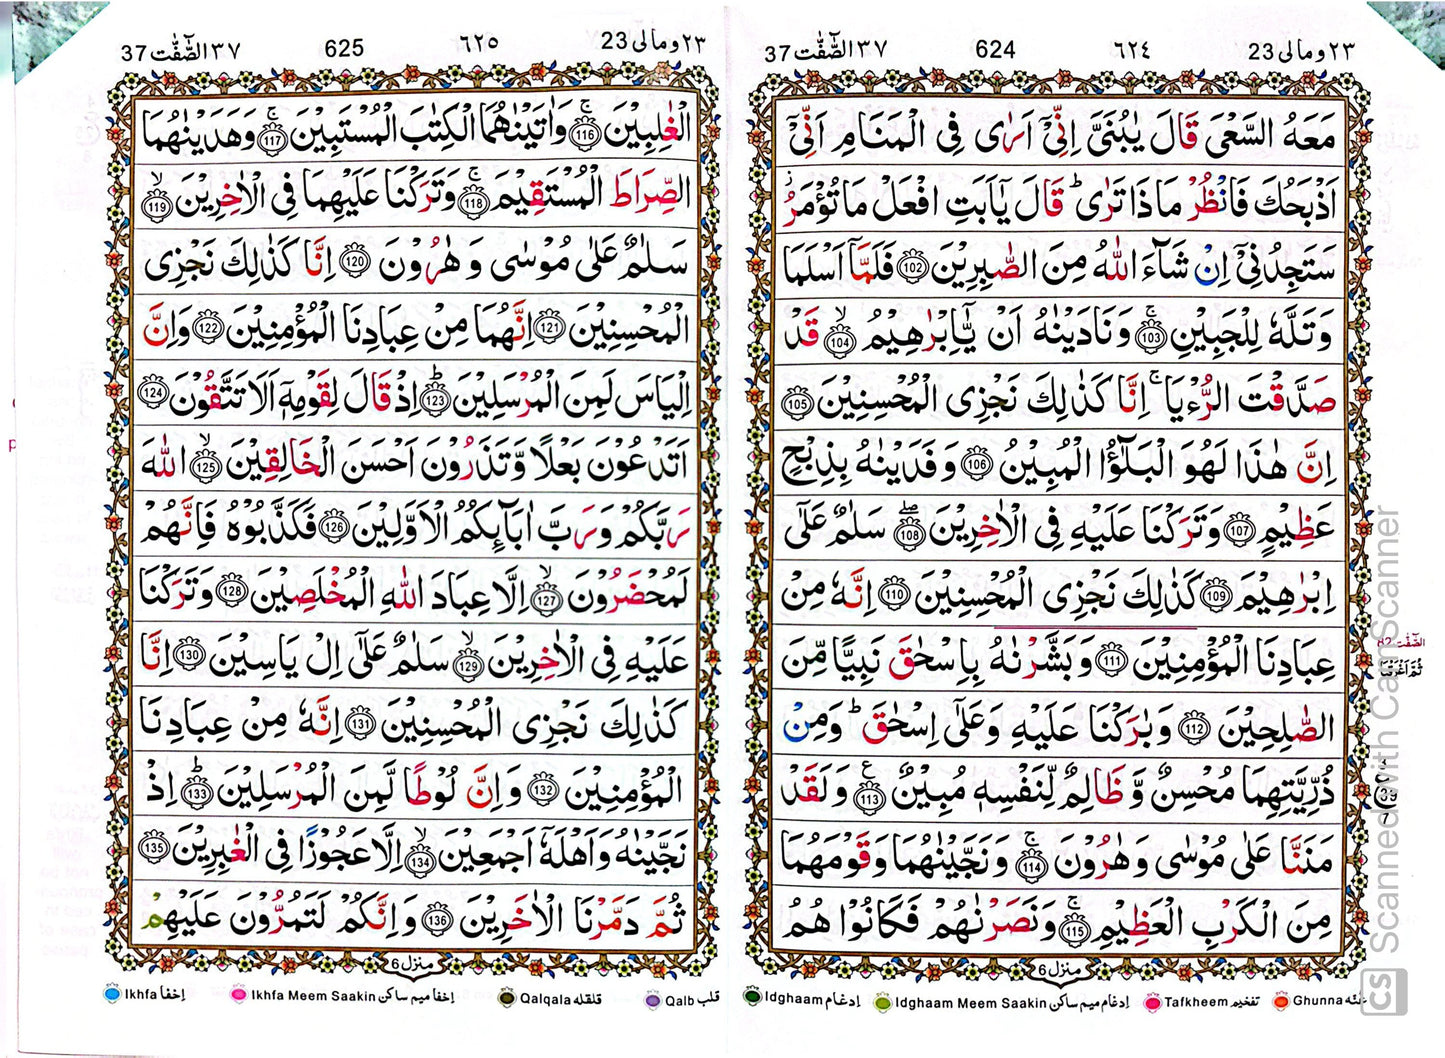 ٢٣ ومالی 23
٦٢٤
624
٣٧ الصّٰٓفّٰت 37
مَعَهُ السَّعْیَ قَالَ یٰبُنَیَّ اِنِّیْۤ اَرٰی فِی الْمَنَامِ اَنِّیْۤ
اَذْبَحُكَ فَانْظُرْ مَاذَا تَرٰی ؕ قَالَ یٰۤاَبَتِ افْعَلْ مَا تُؤْمَرُ ؗ
سَتَجِدُنِیْۤ اِنْ شَآءَ اللّٰهُ مِنَ الصّٰبِرِیْنَ 102 فَلَمَّاۤ اَسْلَمَا
وَتَلَّهٗ لِلْجَبِیْنِ ۚ 103 وَنَادَیْنٰهُ اَنْ یّٰۤاِبْرٰهِیْمُ ۙ 104 قَدْ
صَدَّقْتَ الرُّءْیَا ۚ اِنَّا كَذٰلِكَ نَجْزِی الْمُحْسِنِیْنَ 105
اِنَّ هٰذَا لَهُوَ الْبَلٰٓؤُا الْمُبِیْنُ 106 وَفَدَیْنٰهُ بِذِبْحٍ
عَظِیْمٍ 107 وَتَرَكْنَا عَلَیْهِ فِی الْاٰخِرِیْنَ ۖ 108 سَلٰمٌ عَلٰۤی
اِبْرٰهِیْمَ 109 كَذٰلِكَ نَجْزِی الْمُحْسِنِیْنَ 110 اِنَّهٗ مِنْ
عِبَادِنَا الْمُؤْمِنِیْنَ 111 وَبَشَّرْنٰهُ بِاِسْحٰقَ نَبِیًّا مِّنَ
الصّٰلِحِیْنَ 112 وَبٰرَكْنَا عَلَیْهِ وَعَلٰۤی اِسْحٰقَ ؕ وَمِنْ
ذُرِّیَّتِهِمَا مُحْسِنٌ وَّظَالِمٌ لِّنَفْسِهٖ مُبِیْنٌ ۠ 113 وَلَقَدْ
مَنَنَّا عَلٰی مُوْسٰی وَهٰرُوْنَ ۚ 114 وَنَجَّیْنٰهُمَا وَقَوْمَهُمَا
مِنَ الْكَرْبِ الْعَظِیْمِ ۚ 115 وَنَصَرْنٰهُمْ فَكَانُوْا هُمُ
منزل 6
Idghaam ادغام
Idghaam Meem Saakin ادغام میم ساکن
Tafkheem تفخیم
Ghunna غنّه
٢٣ ومالی 23
٦٢٥
625
٣٧ الصّٰٓفّٰت 37
الْغٰلِبِیْنَ ۚ 116 وَاٰتَیْنٰهُمَا الْكِتٰبَ الْمُسْتَبِیْنَ ۚ 117 وَهَدَیْنٰهُمَا
الصِّرَاطَ الْمُسْتَقِیْمَ ۚ 118 وَتَرَكْنَا عَلَیْهِمَا فِی الْاٰخِرِیْنَ ۙ 119
سَلٰمٌ عَلٰی مُوْسٰی وَهٰرُوْنَ 120 اِنَّا كَذٰلِكَ نَجْزِی
الْمُحْسِنِیْنَ 121 اِنَّهُمَا مِنْ عِبَادِنَا الْمُؤْمِنِیْنَ 122 وَاِنَّ
اِلْیَاسَ لَمِنَ الْمُرْسَلِیْنَ ؕ 123 اِذْ قَالَ لِقَوْمِهٖۤ اَلَا تَتَّقُوْنَ 124
اَتَدْعُوْنَ بَعْلًا وَّتَذَرُوْنَ اَحْسَنَ الْخَالِقِیْنَ ۙ 125 اللّٰهَ
رَبَّكُمْ وَرَبَّ اٰبَآئِكُمُ الْاَوَّلِیْنَ 126 فَكَذَّبُوْهُ فَاِنَّهُمْ
لَمُحْضَرُوْنَ ۙ 127 اِلَّا عِبَادَ اللّٰهِ الْمُخْلَصِیْنَ 128 وَتَرَكْنَا
عَلَیْهِ فِی الْاٰخِرِیْنَ ۙ 129 سَلٰمٌ عَلٰۤی اِلْ یَاسِیْنَ 130 اِنَّا
كَذٰلِكَ نَجْزِی الْمُحْسِنِیْنَ 131 اِنَّهٗ مِنْ عِبَادِنَا
الْمُؤْمِنِیْنَ 132 وَاِنَّ لُوْطًا لَّمِنَ الْمُرْسَلِیْنَ ؕ 133 اِذْ
نَجَّیْنٰهُ وَاَهْلَهٗۤ اَجْمَعِیْنَ ۙ 134 اِلَّا عَجُوْزًا فِی الْغٰبِرِیْنَ 135
ثُمَّ دَمَّرْنَا الْاٰخَرِیْنَ 136 وَاِنَّكُمْ لَتَمُرُّوْنَ عَلَیْهِمْ
منزل 6
Ikhfa اخفا
Ikhfa Meem Saakin اخفا میم ساکن
Qalqala قلقله
Qalb قلب
CS Scanned with CamScanner